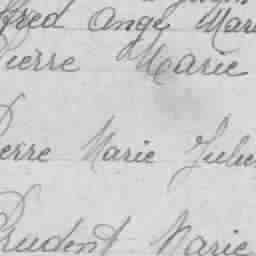 fred Ange Mari
Pierre Marie
Pierre Marie Julie
Prudent Marie